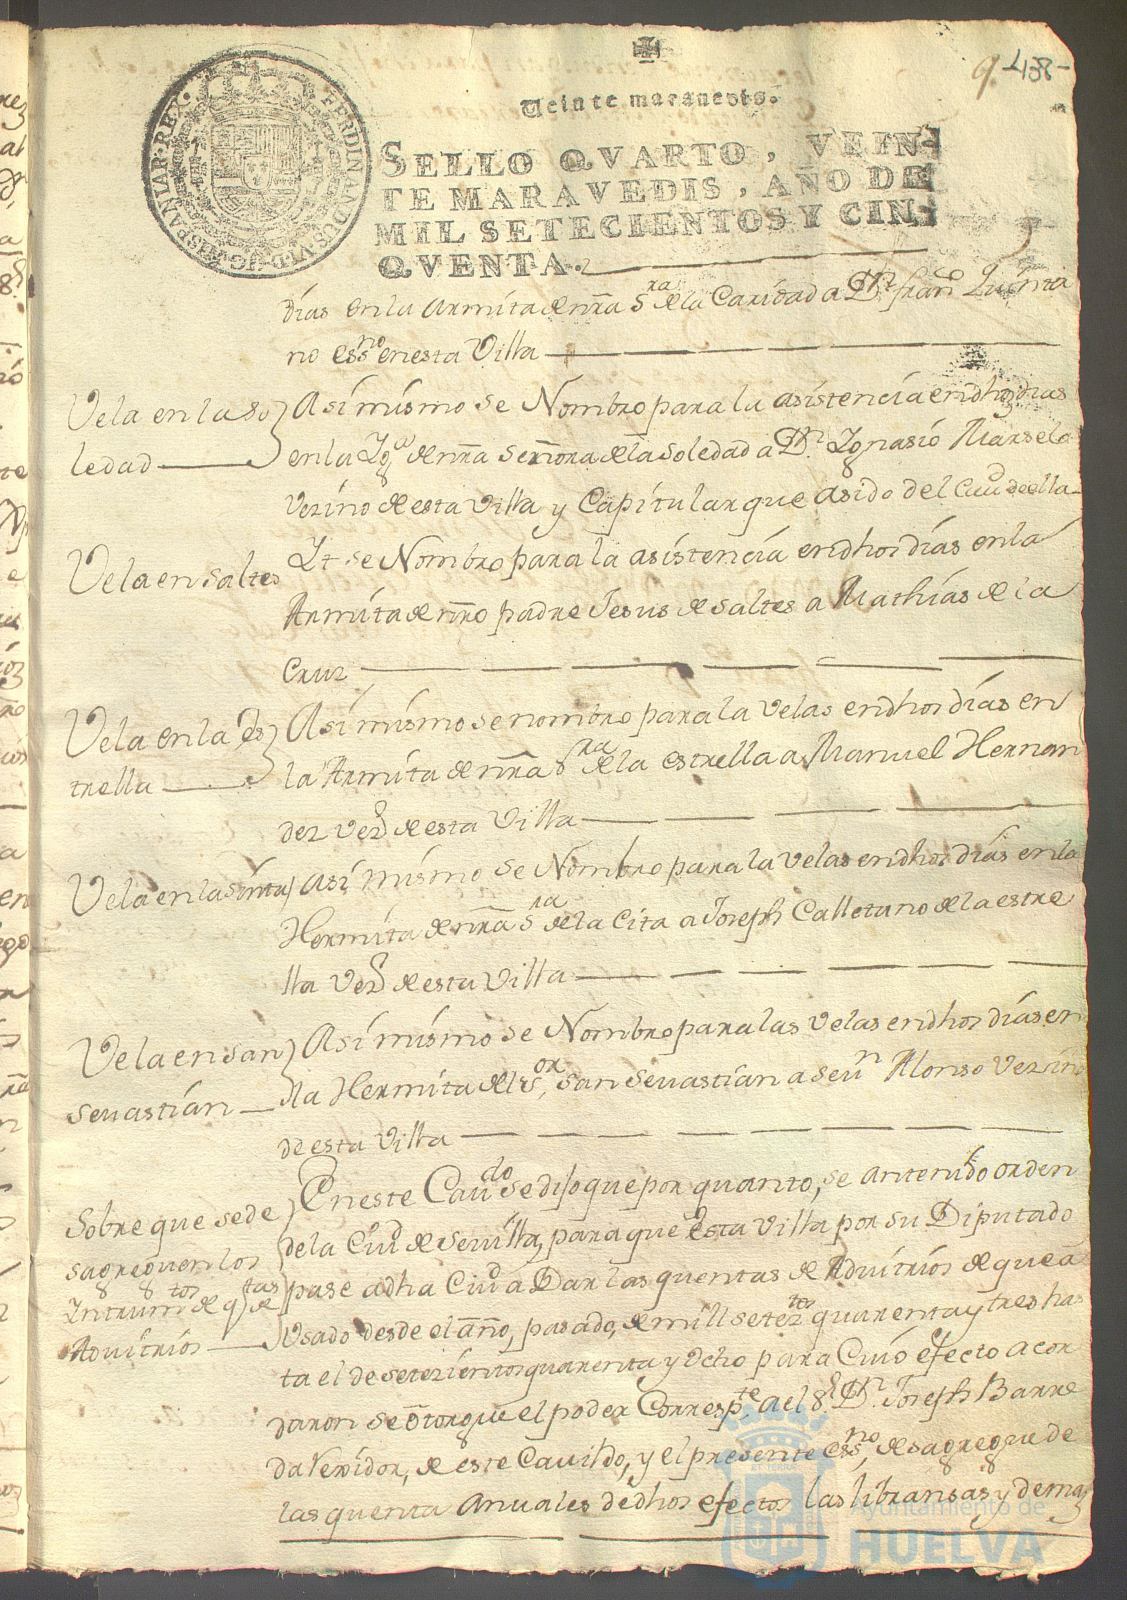 9. 438
Veinte maravedis.
FERDINANDUS.VI.D.G.HISPANIAR.REX.
SELLO QVARTO, VEIN-
TE MARAVEDIS, AÑO DE
MIL SETECIENTOS Y CIN-
QVENTA.
dias en la Armita de nrã Sra de la Caridad a Dn franco Quinta
no essno en esta Villa
Vela en la So
ledad
Asimismo se Nombro para la asistencia en dhos dias
en la Yga de nrã Señiora de la Soledad a Dn Ygnasio Marselo
Vezino de esta Villa y Capitular que asido del Cavd de ella
Vela en saltes
Yt se Nombro para la asistencia en dhos dias en la
Armita de nrõ padre Jesus de saltes a Mathias de la
Cruz
Vela en la Es
trella
Asimismo se nombro para la Velas en dhos dias en
la Armita de nrã Sra de la estrella a Manuel Hernan
dez Vezo de esta Villa
Vela en la sinta
Asi mismo se Nombro para la Velas en dhos dias en la
Hermita de nrã Sra de la Cita a Joseph Calletano de la estre
lla Vezo de esta Villa
Vela en san
sevastian
Asi mismo se Nombro para las Velas en dhos dias en
lla Hermita del Sor, san Sevastian a Sevn Alonso Vezino
de esta Villa
Sobre que se de
sagreguen los
Intrumtos de qtas de
Advitrios
En este Cavdo se dijo que por quanto, se an tenido orden
de la Ciud de Sevilla, para que esta Villa por su Diputado
pase a dha Ciud a Dar las quentas de Advitrios de que ã
Usado desde el año, pasado, de mill setezts quarenta y tres has
ta el de setezientos quarenta y Ocho para Cuio efecto acor
daron se otorgue el poder Correspte, a el Sr Dn Joseph Barre
da Rexidor, de este Cavildo, y el presente essno, desagregue de
las quenta Anuales de dhos efectos las libransas y demas
Ayuntamiento de
HUELVA